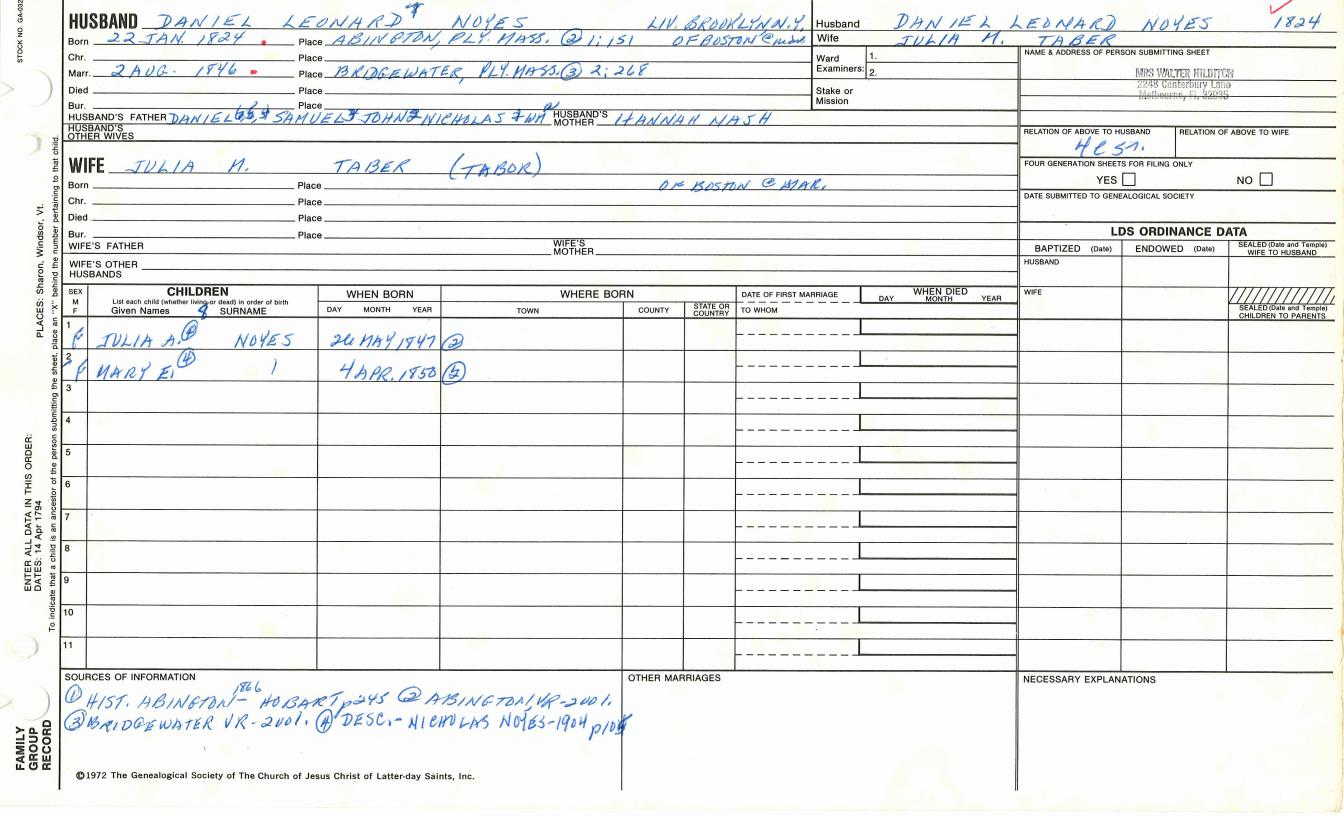 STOCK NO. GA-032
HUSBAND DANIEL LEONARD 7 NOYES LIV. BROOKLYN N.Y.
Born 22 JAN. 1824 Place ABINGTON, PLY. MASS. ② 1; 151 OF BOSTON @
Chr. Place
Marr. 2 AUG. 1846 Place BRIDGEWATER, PLY. MASS. ③ 2; 268
Died Place
Bur. Place
HUSBAND'S FATHER DANIEL SAMUEL JOHN NICHOLAS HUSBAND'S MOTHER HANNAH NASH
HUSBAND'S OTHER WIVES
WIFE JULIA M. TABER (TABOR)
Born Place OF BOSTON @ MAR.
Chr. Place
Died Place
Bur. Place
WIFE'S FATHER WIFE'S MOTHER
WIFE'S OTHER HUSBANDS
Husband DANIEL LEONARD NOYES 1824
Wife JULIA M. TABER
Ward Examiners: 1.
2.
Stake or Mission
NAME & ADDRESS OF PERSON SUBMITTING SHEET
MRS WALTER HILDITCH
2248 Canterbury Lane
Melbourne, Fl. 32935
RELATION OF ABOVE TO HUSBAND RELATION OF ABOVE TO WIFE
FOUR GENERATION SHEETS FOR FILING ONLY
YES NO
DATE SUBMITTED TO GENEALOGICAL SOCIETY
LDS ORDINANCE DATA
BAPTIZED (Date) ENDOWED (Date) SEALED (Date and Temple) WIFE TO HUSBAND
HUSBAND
WIFE
SEALED (Date and Temple) CHILDREN TO PARENTS
SEX M F CHILDREN WHEN BORN WHERE BORN DATE OF FIRST MARRIAGE WHEN DIED
List each child (whether living or dead) in order of birth
Given Names 8 SURNAME DAY MONTH YEAR TOWN COUNTY STATE OR COUNTRY TO WHOM DAY MONTH YEAR
1 f JULIA A. ④ NOYES 26 MAY 1847 ②
2 f MARY E. ④ 4 APR. 1850
3
4
5
6
7
8
9
10
11
SOURCES OF INFORMATION
① HIST. ABINGTON- 1866 HOBART p245 ② ABINGTON VR-2001.
③ BRIDGEWATER VR-2001. ④ DESC.- NICHOLAS NOYES-1904
OTHER MARRIAGES
NECESSARY EXPLANATIONS
©1972 The Genealogical Society of The Church of Jesus Christ of Latter-day Saints, Inc.
FAMILY GROUP RECORD
ENTER ALL DATA IN THIS ORDER:
DATES: 14 Apr 1794
PLACES: Sharon, Windsor, Vt.
To indicate that a child is an ancestor of the person submitting the sheet, place an "X" behind the number pertaining to that child.